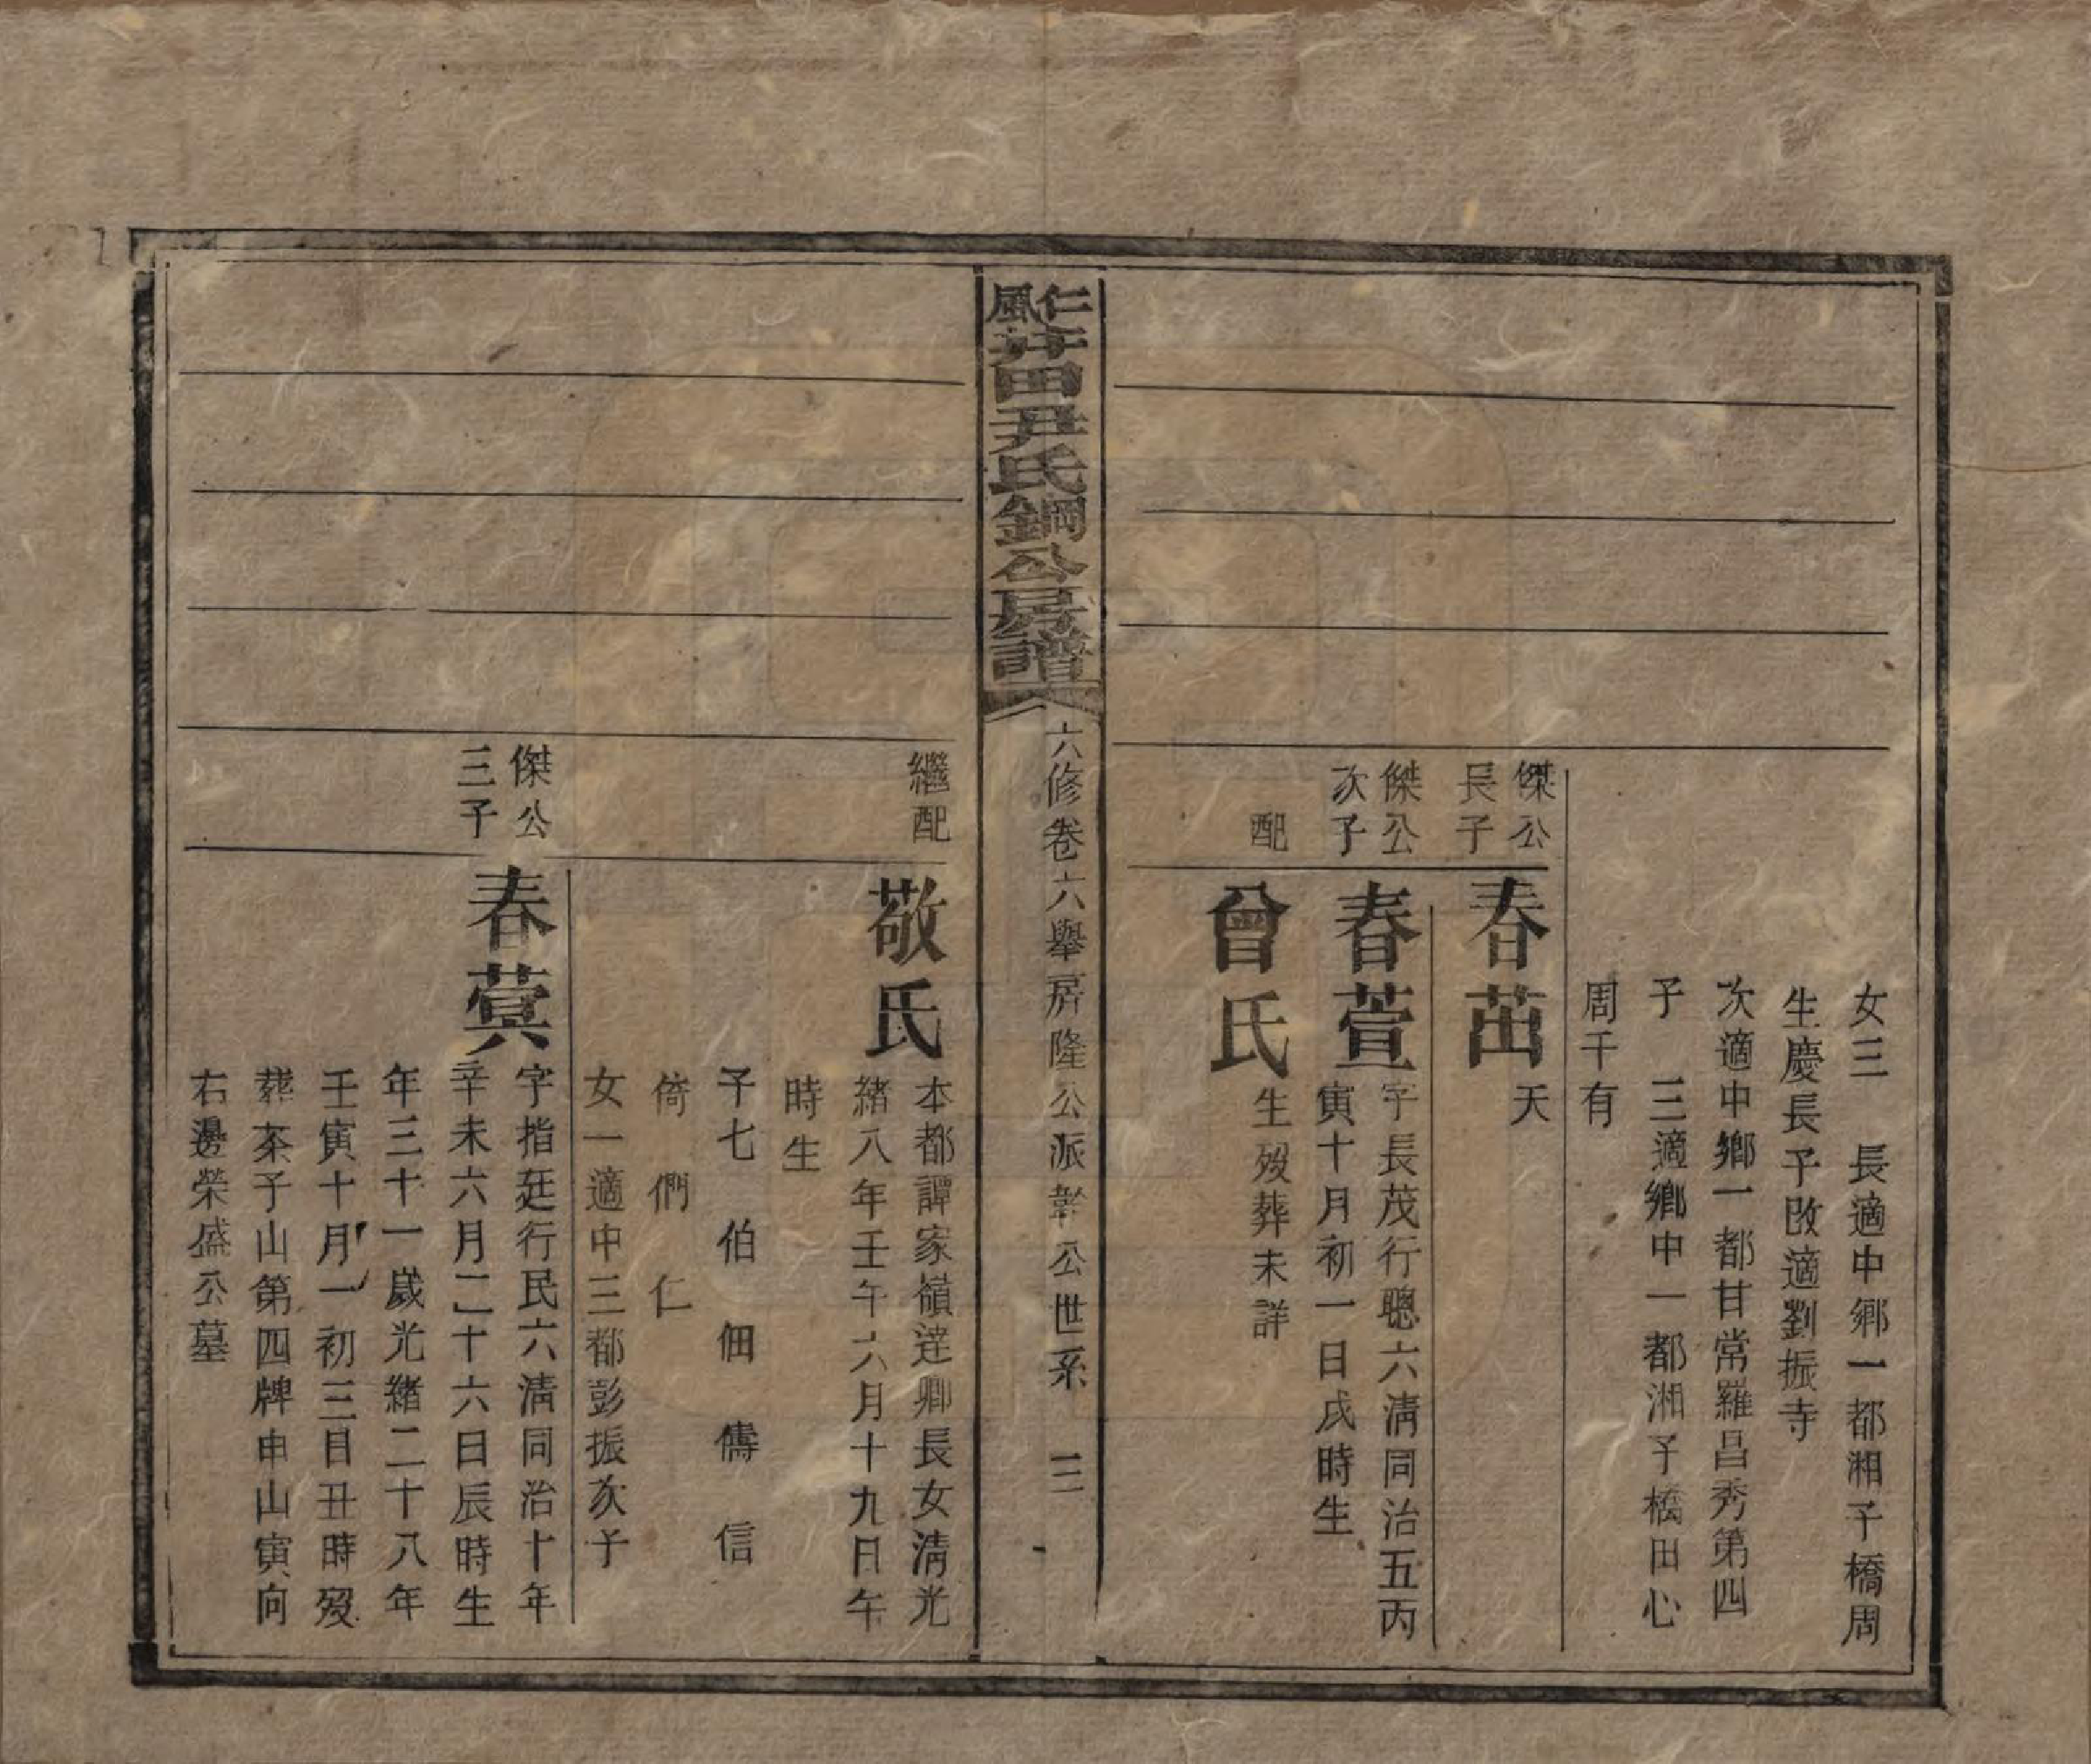 女三　長適中鄕一都湘子橋周
生慶長子改適劉振寺
次適中鄕一都甘常羅昌秀第四
子　三適鄕中一都湘子橋田心
周干有
傑公
長子
春茁
天
傑公
次子
春萱
字長茂行聰六淸同治五丙
寅十月初一日戌時生
配
曾氏
生歿葬未詳
仁風井田尹氏鋼公房譜
六修卷六舉房隆公派公世系　三
繼配
敬氏
本都譚家嶺達卿長女淸光
緒八年壬午六月十九日午
時生
子七　伯　佃　儔　信
倚　們　仁
女一適中三都彭振次子
傑公
三子
春蓂
字指廷行民六淸同治十年
辛未六月二十六日辰時生
年三十一歲光緒二十八年
壬寅十月一初三日丑時歿
葬茶子山第四牌申山寅向
右邊榮盛公墓